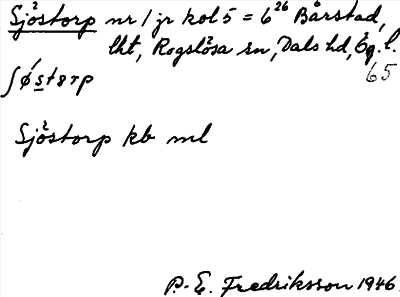 Sjöstorp nr 1 jr kol 5 = 6²⁶ Bårstad,
lht, Rogslösa sn, Dals hd, Ög. l.
65
ʃøstɵrp
Sjöstorp kb ml
P.-E. Fredriksson 1946.